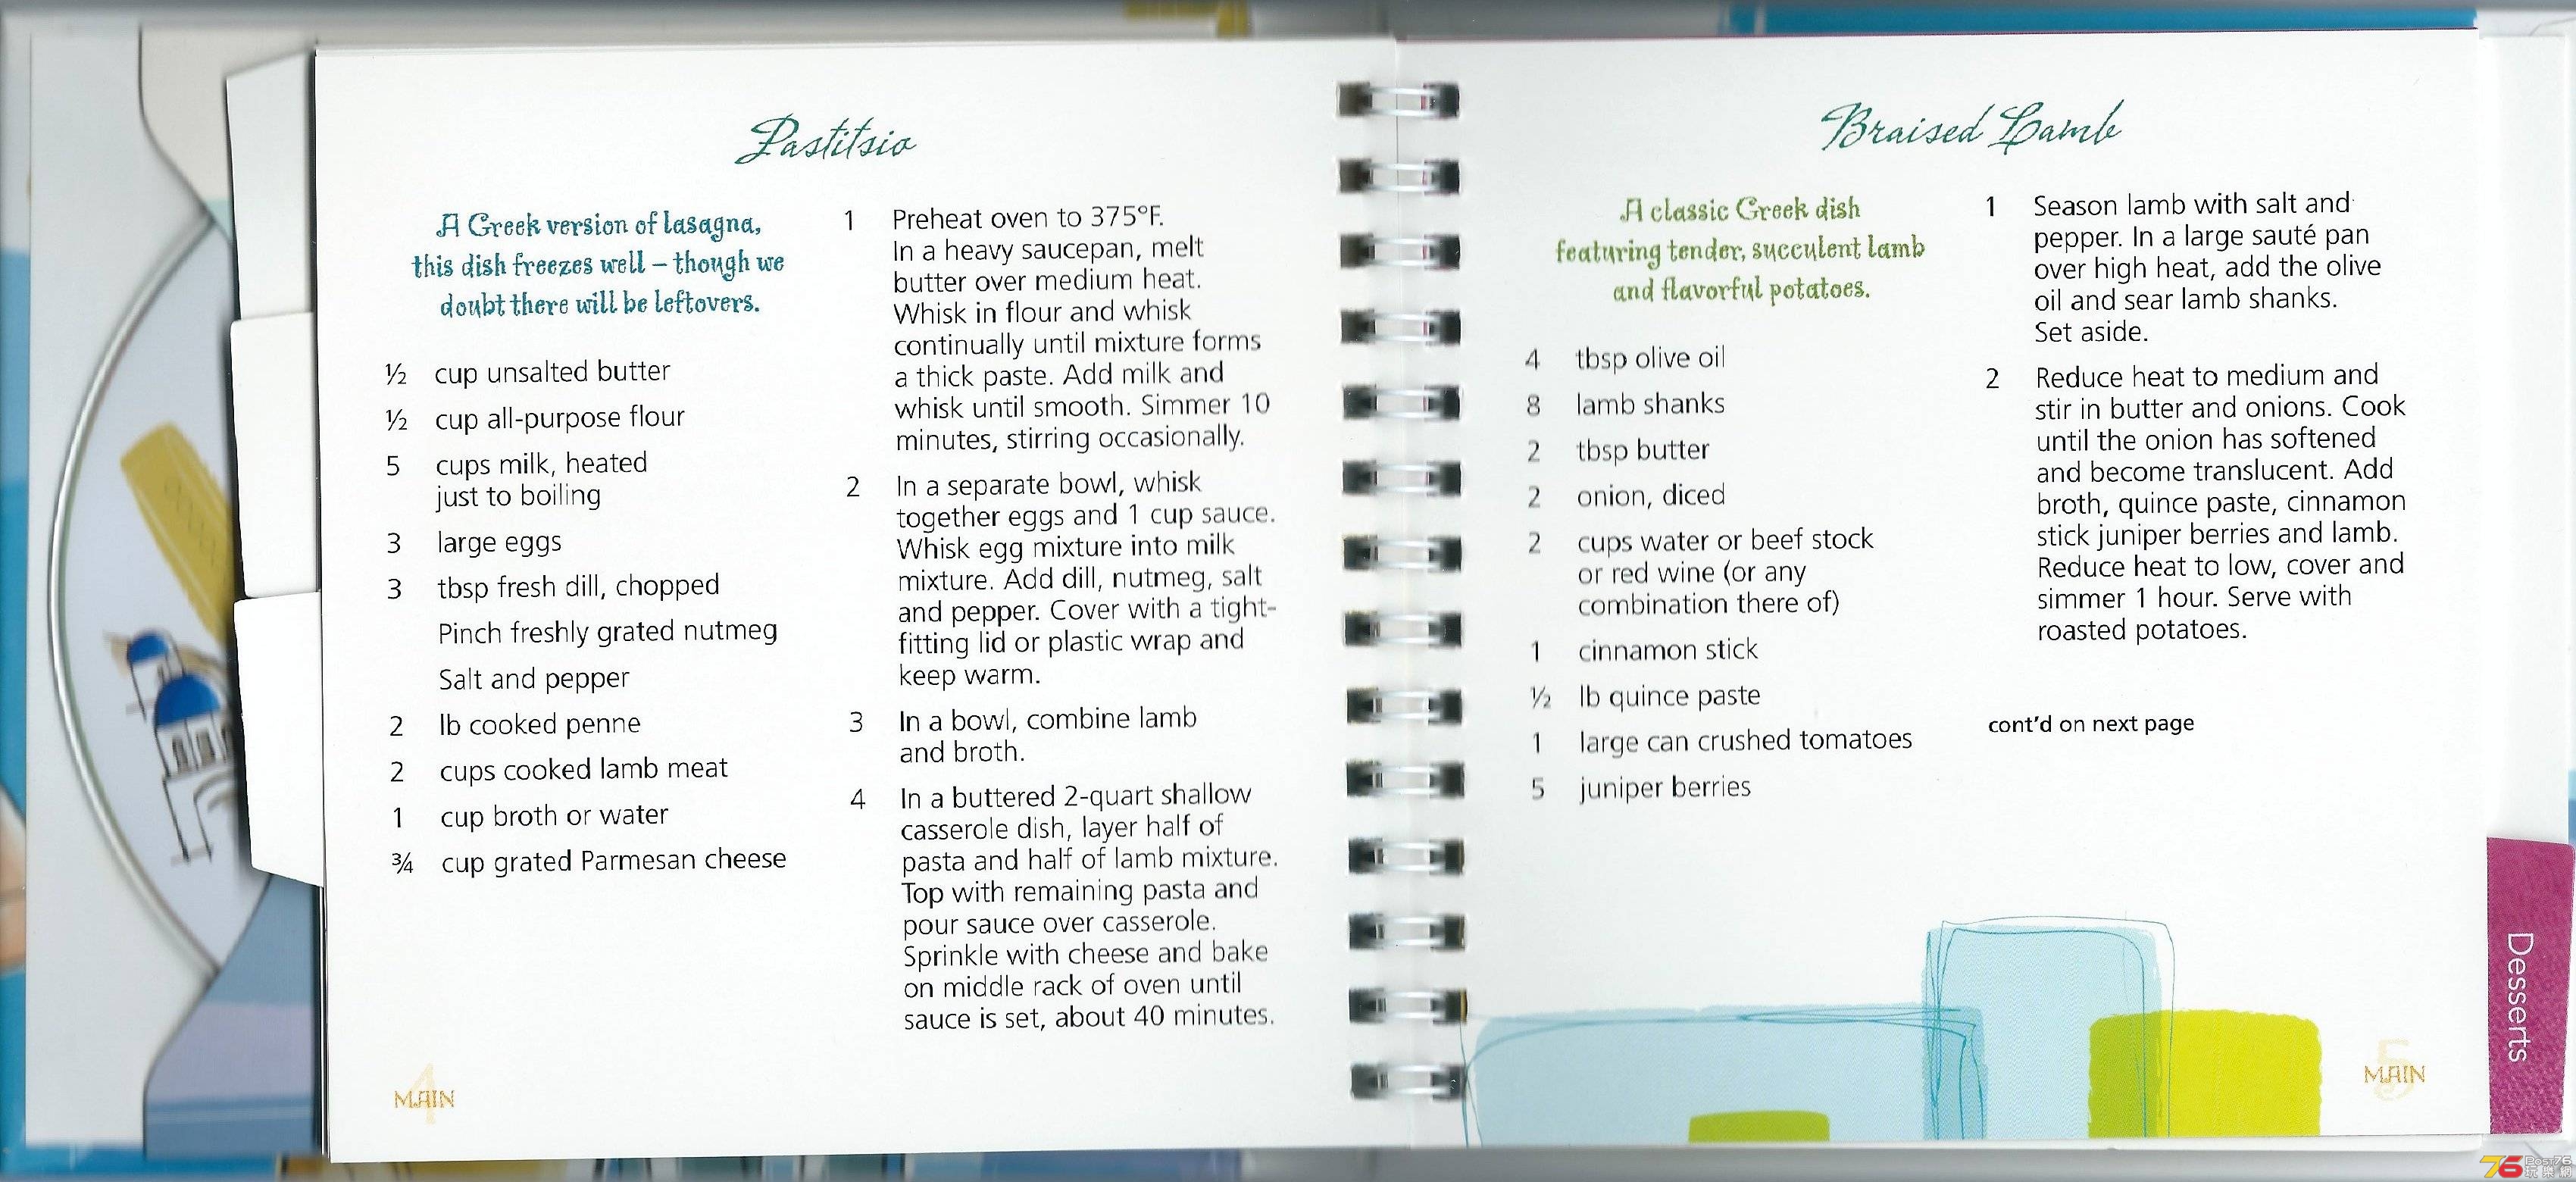 Pastitsio
A Greek version of lasagna,
this dish freezes well – though we
doubt there will be leftovers.
½ cup unsalted butter
½ cup all-purpose flour
5 cups milk, heated
just to boiling
3 large eggs
3 tbsp fresh dill, chopped
Pinch freshly grated nutmeg
Salt and pepper
2 lb cooked penne
2 cups cooked lamb meat
1 cup broth or water
¾ cup grated Parmesan cheese
1 Preheat oven to 375°F.
In a heavy saucepan, melt
butter over medium heat.
Whisk in flour and whisk
continually until mixture forms
a thick paste. Add milk and
whisk until smooth. Simmer 10
minutes, stirring occasionally.
2 In a separate bowl, whisk
together eggs and 1 cup sauce.
Whisk egg mixture into milk
mixture. Add dill, nutmeg, salt
and pepper. Cover with a tight-
fitting lid or plastic wrap and
keep warm.
3 In a bowl, combine lamb
and broth.
4 In a buttered 2-quart shallow
casserole dish, layer half of
pasta and half of lamb mixture.
Top with remaining pasta and
pour sauce over casserole.
Sprinkle with cheese and bake
on middle rack of oven until
sauce is set, about 40 minutes.
4
MAIN
Braised Lamb
A classic Greek dish
featuring tender, succulent lamb
and flavorful potatoes.
4 tbsp olive oil
8 lamb shanks
2 tbsp butter
2 onion, diced
2 cups water or beef stock
or red wine (or any
combination there of)
1 cinnamon stick
½ lb quince paste
1 large can crushed tomatoes
5 juniper berries
1 Season lamb with salt and
pepper. In a large sauté pan
over high heat, add the olive
oil and sear lamb shanks.
Set aside.
2 Reduce heat to medium and
stir in butter and onions. Cook
until the onion has softened
and become translucent. Add
broth, quince paste, cinnamon
stick juniper berries and lamb.
Reduce heat to low, cover and
simmer 1 hour. Serve with
roasted potatoes.
cont'd on next page
5
MAIN
Desserts
76 Post76
玩樂網